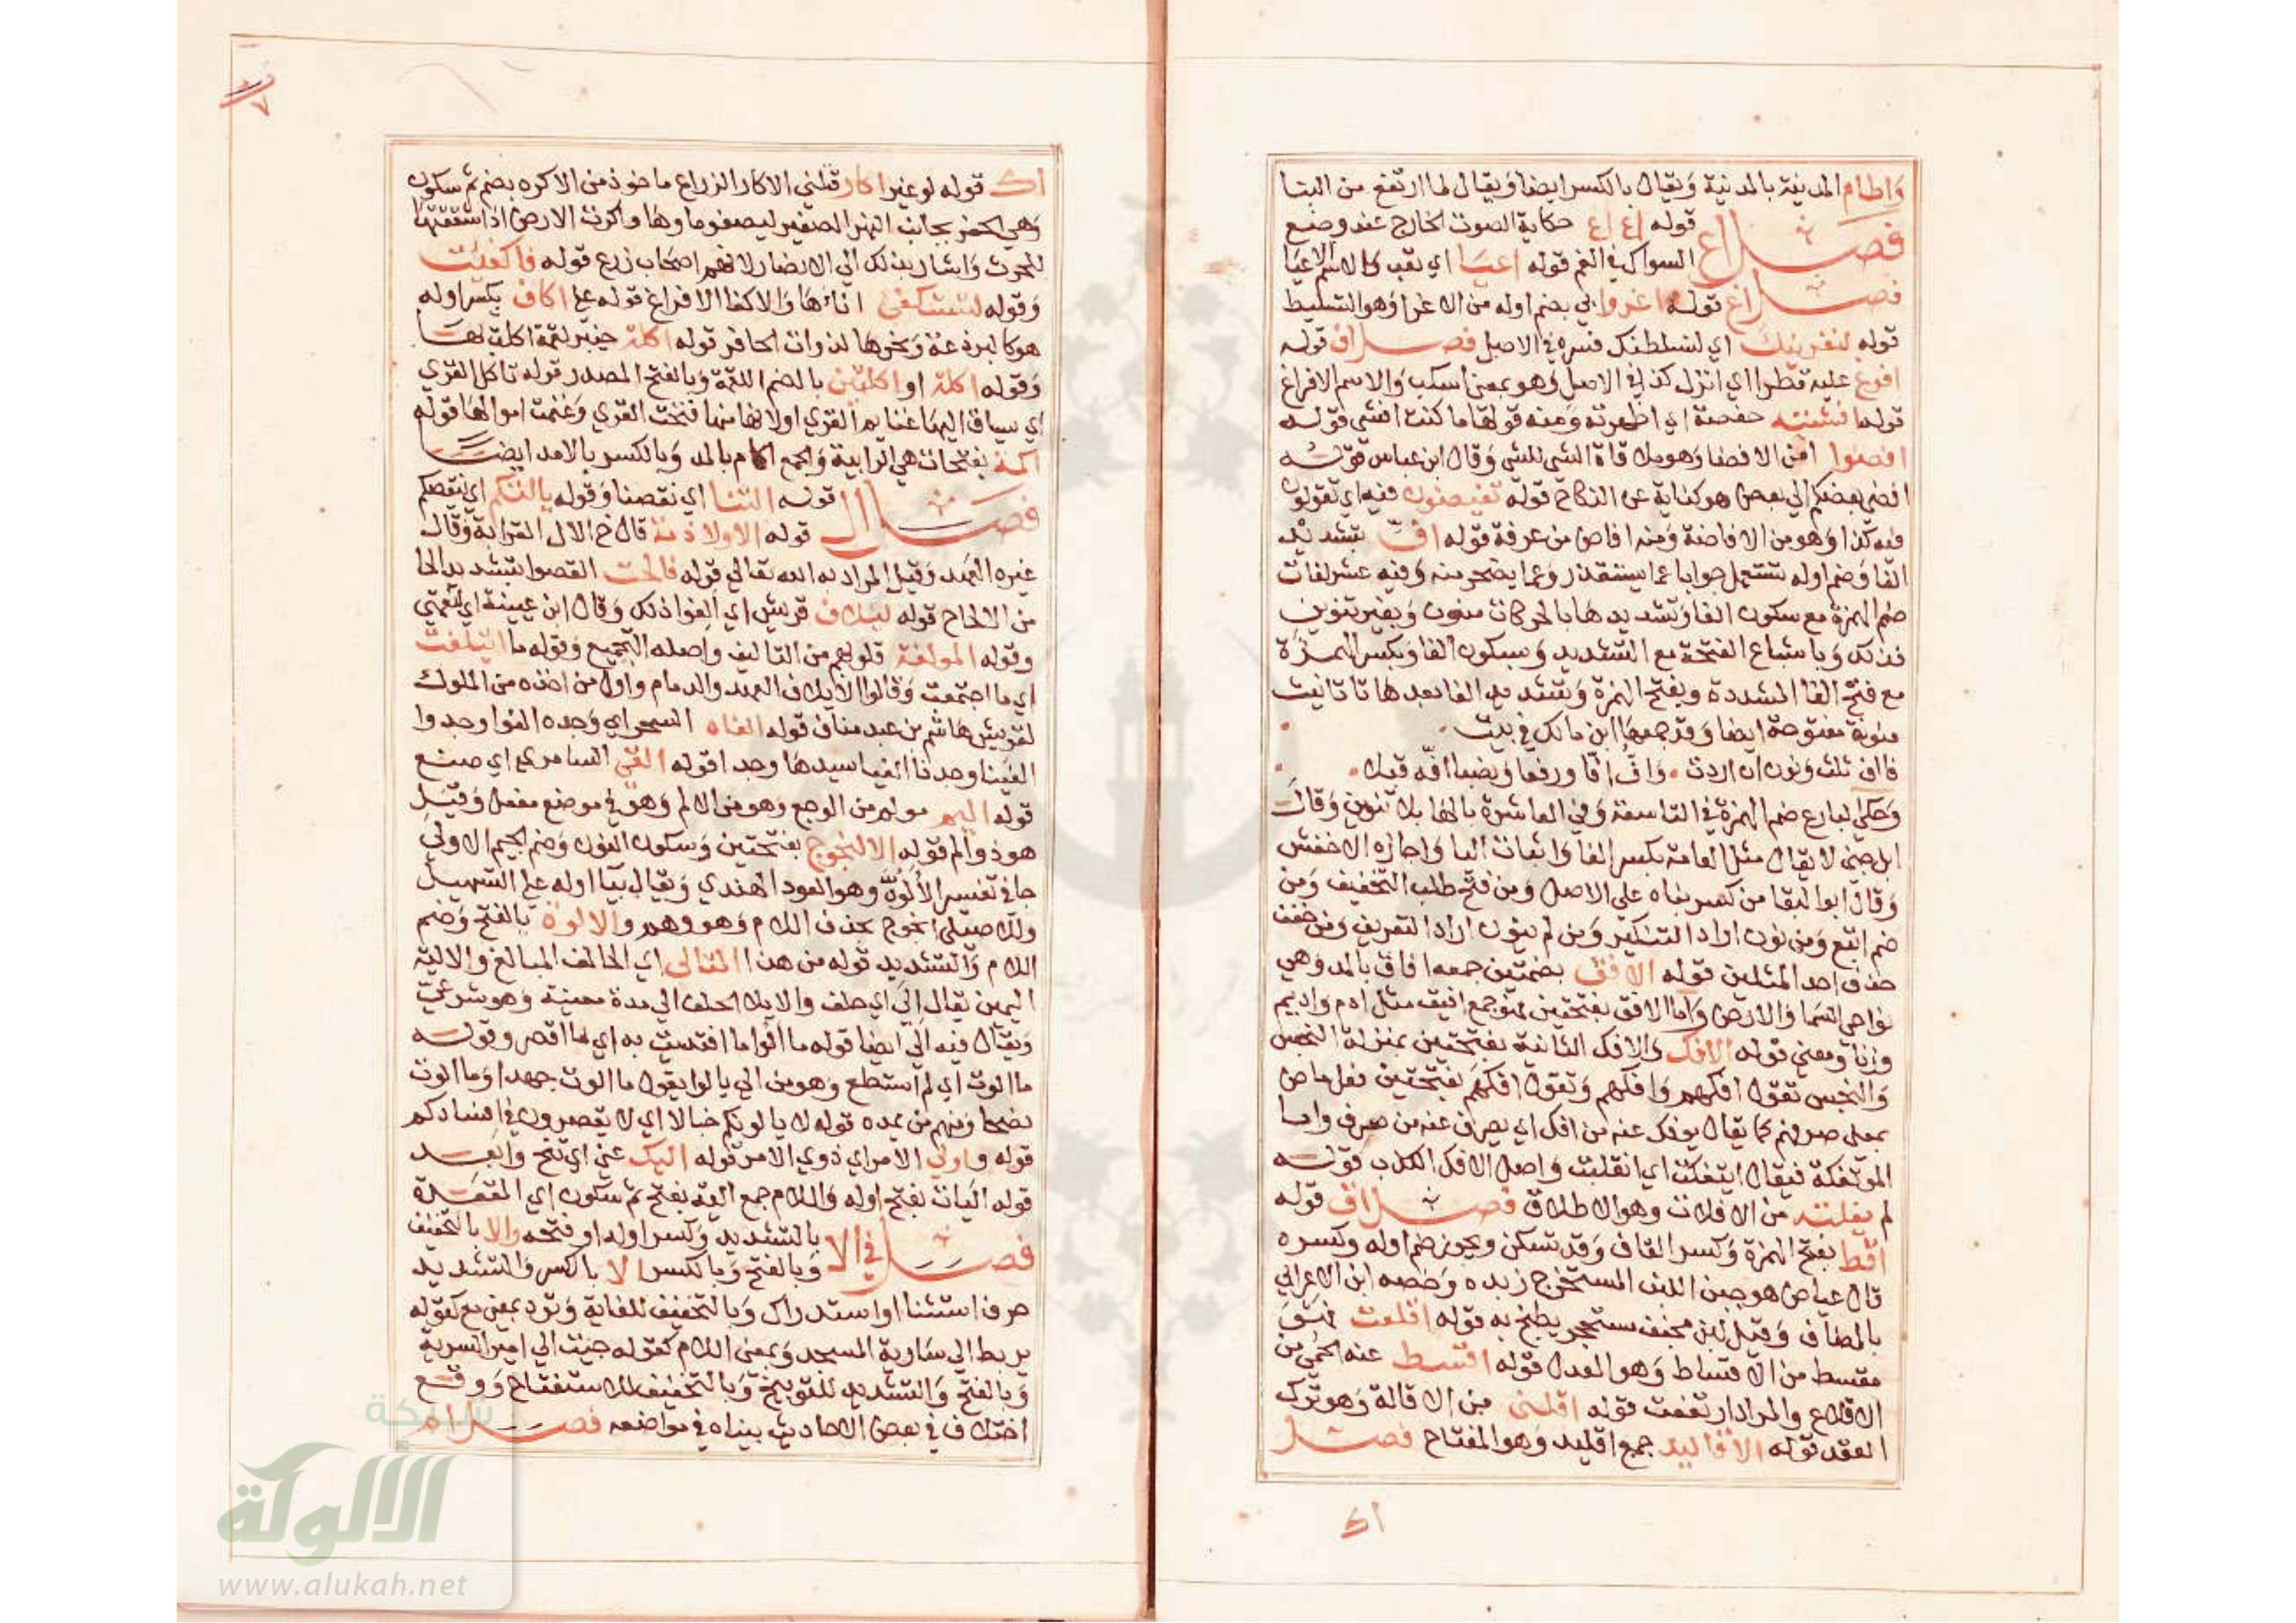 وَاطام المدينة بالمدنية وَيقال بالكسر ايضا وَيقال لما ارتفع من البنا
فصل اع قوله اع اع حكاية الصوت الخارج عند وضع
السواك في الفم قوله اعيا اي تعب والاسم الاعيا
فصل اغ قوله اغروا بي بضم اوله من الاغرا وَهو التسليط
قوله لنغرينك اي لنسلطنك فسره في الاصل فصل اف قوله
افرغ عليه قطرا اي انزل كذا في الاصل وَهو بمعنى اسكب وَالاسم الافراغ
قوله افشته حفصة اي اظهرته وَمنه قولها ما كنت افشي قوله
افضوا من الافضا وَهو ملاقاة الشي للشي وَقال ابن عباس قوله
افضى بعضكم الي بعض هو كناية عن النكاح قوله تفيضون فيه اي تقولون
فيه كذا وَهو من الافاضة وَمنه افاض من عرفة قوله اف بتشديد
الفا وَضم اوله تستعمل جوابا عما يستقذر وَعما يضجر منه وَفيه عشر لغات
ضم الهمزة مع سكون الفا وَتشديدها بالحركات منون وَبغير تنوين
فذلك وَباشباع الفتحة مع التشديد وَسكون الفا وَبكسر الهمزة
مع فتح الفا المشددة وبفتح الهمزة وَتشديد الفا بعدها تا تانيث
منونة مفتوحة ايضا وَقد جمعها ابن مالك في بيت
فاف ثلث وَنون ان اردت وَاف افا ورفعا وَنصبا افة قيل
وَحكي البارع ضم الهمزة في التاسعة وَفي العاشرة بالفا بلا تنوين وَقال
ابن جني لا يقال مثل العامة بكسر الفا وَاثبات اليا وَاجازه الاخفش
وَقال ابو البقا من كسر بناه على الاصل وَمن فتح طلب التخفيف وَمن
ضم اتبع وَمن نون اراد التنكير وَمن لم ينون اراد التعريف وَمن خفف
حذف احد المثلين قوله الافق بضمتين جمعه افاق بالمد وَهي
نواحي السما وَالارض وَاما الافق بفتحتين فهو جمع افيق مثل ادم واديم
وزنا وَمعنى قوله الافك وَالافك الثانية بفتحتين بمنزلة النجس
وَالنجس تقول افكهم وَافكهم وَتقول افكهم بفتحتين فعل ماض
بمعنى صرفهم كما يقال يوفك عنه من افك اي يصرف عنه من صرف واما
الموتفكة فيقال ايتفكت اي انقلبت وَاصل الافك الكذب قوله
لم يفلته من الافلات وهو الاطلاق فصل اق قوله
اقط بفتح الهمزة وَكسر القاف وَقد تسكن ويجوز ضم اوله وكسره
قال عياض هو جبن اللبن المستخرج زبده وَخصه ابن الاعرابي
بالضان وَقيل لبن مجفف مستحجر يطبخ به قوله اقلعت
مقسط من الاقساط وَهو العدل قوله اقسط عنه الحمى من
الاقلاع والمراد ارتفعت قوله اقلني من الاقالة وَهو ترك
العقد قوله الاقاليد جمع اقليد وَهو المفتاح فصل
اك
اك قوله لو غير اكار قتلني الاكار الزراع ماخوذ من الاكره بضم ثم سكون
وَهي الحفر بجانب النهر الصغير ليصفو ماوها واكرت الارض اذا شققتها
للحرث وَاشار بذلك الي الانصار لانهم اصحاب زرع قوله فاكفئت
وَقوله لتستكفئ اناءها وَالاكفا الافراغ قوله على اكاف بكسر اوله
هو كالبرذعة وَنحوها لذوات الحافر قوله اكلة خيبر لقمة اكلت بها
وَقوله اكلة او اكلتين بالضم اللقمة وَبالفتح المصدر قوله تاكل القري
اي يساق اليها غنايم القرى او لانها منها فتحت القري وَغنمت اموالها قوله
اكمة بفتحات هي الرابية وَالجمع اكام بالمد وَبالكسر بلا مد ايضا
فصل ال قوله التنا اي نقصنا وَقوله يالتكم اي ينقصكم
قوله الا ولا ذمة قال خ الال القرابة وَقال
غيره العهد وَقيل المراد به الله تعالى قوله فالحت القصوا بتشديد الحا
من الالحاح قوله ليلاف قريش اي الفوا ذلك وَقال ابن عيينة اي لنعمتي
وقوله المولفة قلوبهم من التاليف واصله التجميع وَقوله ما ايتلفت
اي ما اجتمعت وَقالوا الايلاف العهد والذمام واول من اخذه من الملوك
لقريش هاشم بن عبد مناف قوله الفاه السحر اي وَجده الفوا وجدوا
الفينا وجدنا الفيا سيدها وجدا قوله القى السامري اي صنع
قوله اليم مولم من الوجع وهو من الالم وَهو في موضع مفعل وَقيل
هو ذو الم قوله الالنجوج بفتحتين وَسكون النون وَضم الجيم الاولى
جا في تفسير الألُوّة وهو العود الهندي وَيقال بيا اوله على التسهيل
وللاصيلى انجوج بحذف اللام وَهو وهم والالوة بالفتح وَضم
اللام وَالتشديد قوله من هذا المتالي اي الحالف المبالغ والالية
اليمين يقال الَى اي حلف والايلا الحلف الي مدة معينة وَهو شرعي
وَيقال فيه الَى ايضا قوله ما الوا ما افتديت به اي ما اقصر وقوله
ما الوت اي لم استطع وَهو من الي يالوا يقول ما الوت جهدا وَما الوت
نصحا وَمنهم من يمده قوله لا يالونكم خبالا اي لا يقصرون في افسادكم
قوله واولي الامر اي ذوي الامر قوله اليك عني اي تنح وابعد
قوله اليات بفتح اوله وَاللام جمع الية بفتح ثم سكون اي المقعدة
فصل في الا بالتشديد وكسر اوله او فتحه والا بالتخفيف
وَبالفتح وَبالكسر الا بالكسر وَالتشديد
حرف استثنا او استدراك وَبالتخفيف للغاية وَترد بمعنى مع كقوله
يربط الي سارية المسجد وَبمعنى اللام كقوله جيت الي امير السرية
وَبالفتح وَالتشديد للتوبيخ وَبالتخفيف للاستفتاح وَوقع
اختلاف في بعض الاحاديث بيناه في مواضعه فصل ام
شبكة
الألوكة
www.alukah.net